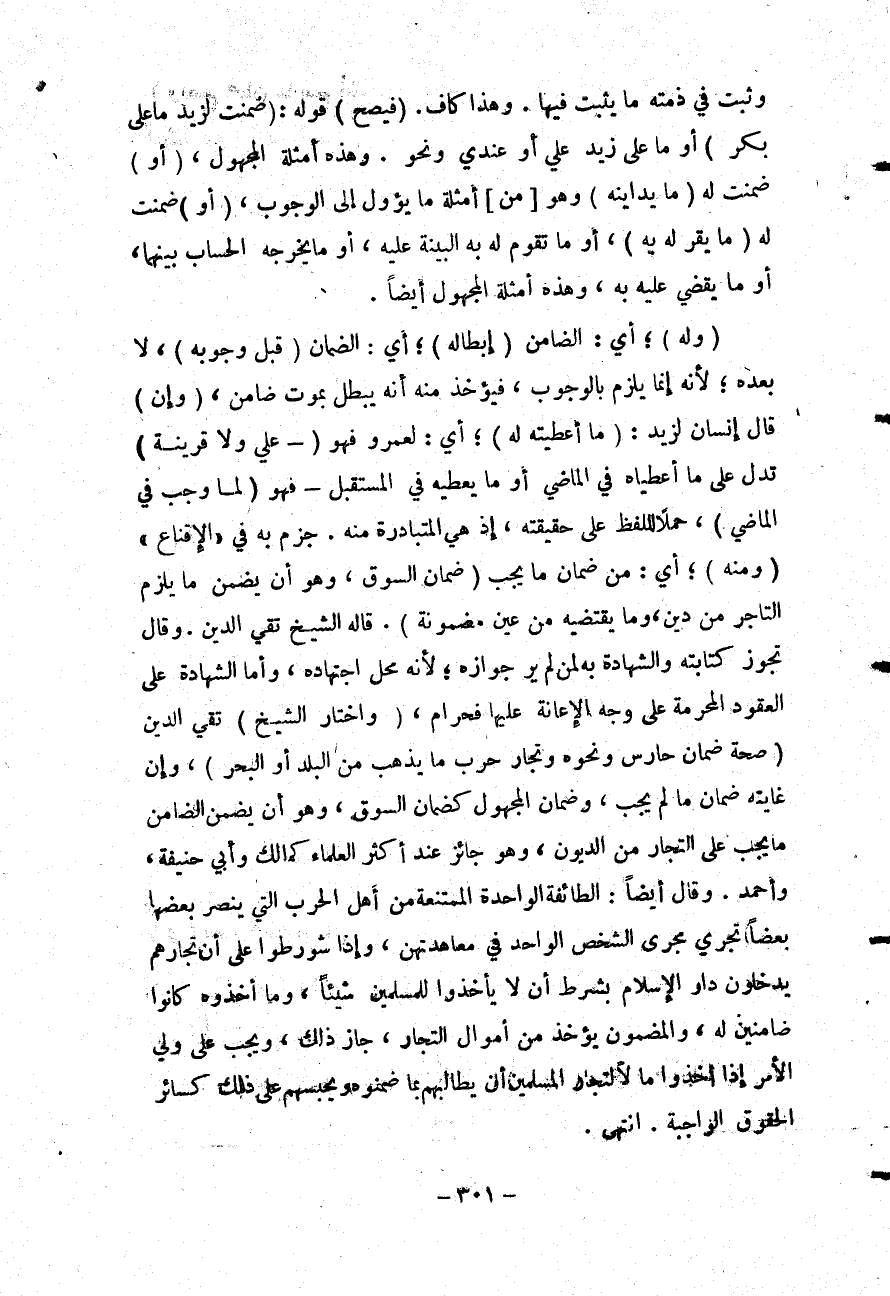 وثبت في ذمته ما يثبت فيها . وهذا كاف. (فيصح) قوله : (ضمنت لزيد ماعلى
بكر ) أو ما على زيد علي أو عندي ونحو . وهذه أمثلة المجهول ، ( أو )
ضمنت له ( ما يداينه ) وهو [ من ] أمثلة ما يؤول إلى الوجوب ، ( أو ) ضمنت
له ( ما يقر له به ) ، أو ما تقوم له به البينة عليه ، أو مايخرجه الحساب بينهما،
أو ما يقضي عليه به ، وهذه أمثلة المجهول أيضاً .
( وله ) ؛ أي : الضامن ( إبطاله ) ؛ أي : الضمان ( قبل وجوبه ) ، لا
بعده ؛ لأنه إنما يلزم بالوجوب ، فيؤخذ منه أنه يبطل بموت ضامن ، ( وإن )
قال إنسان لزيد : ( ما أعطيته له ) ؛ أي : لعمرو فهو ( – علي ولا قرينــة )
تدل على ما أعطياه في الماضي أو ما يعطيه في المستقبل – فهو ( لمــا وجب في
الماضي ) ، حملًا للفظ على حقيقته ، إذ هي المتبادرة منه . جزم به في «الإقناع »
( ومنه ) ؛ أي : من ضمان ما يجب ( ضمان السوق ، وهو أن يضمن ما يلزم
التاجر من دين ، وما يقتضيه من عين مضمونة ) . قاله الشيــخ تقي الدين . وقال
تجوز كتابته والشهادة به لمن لم ير جوازه ؛ لأنه محل اجتهاده ، وأما الشهادة على
العقود المحرمة على وجه الإعانة عليها فحرام ، ( واختار الشيــخ ) تقي الدين
( صحة ضمان حارس ونحوه وتجار حرب ما يذهب من البلد أو البحر ) ، وإن
غايته ضمان ما لم يجب ، وضمان المجهول كضمان السوق ، وهو أن يضمن الضامن
مايجب على التجار من الديون ، وهو جائز عند أكثر العلماء كمالك وأبي حنيفة ،
وأحمد . وقال أيضاً : الطائفة الواحدة الممتنعة من أهل الحرب التي ينصر بعضها
بعضاً تجري مجرى الشخص الواحد في معاهدتهن ، وإذا شورطوا على أن تجارهم
يدخلون دار الإسلام بشرط أن لا يأخذوا للمسلمين شيئاً ، وما أخذوه كانوا
ضامنين له ، والمضمون يؤخذ من أموال التجار ، جاز ذلك ، ويجب على ولي
الأمر إذا أخذوا مالاً لتجار المسلمين أن يطالبهم بما ضمنوه ويحبسهم على ذلك كسائر
الحقوق الواجبة . انتهى .
– ٣٠١ –